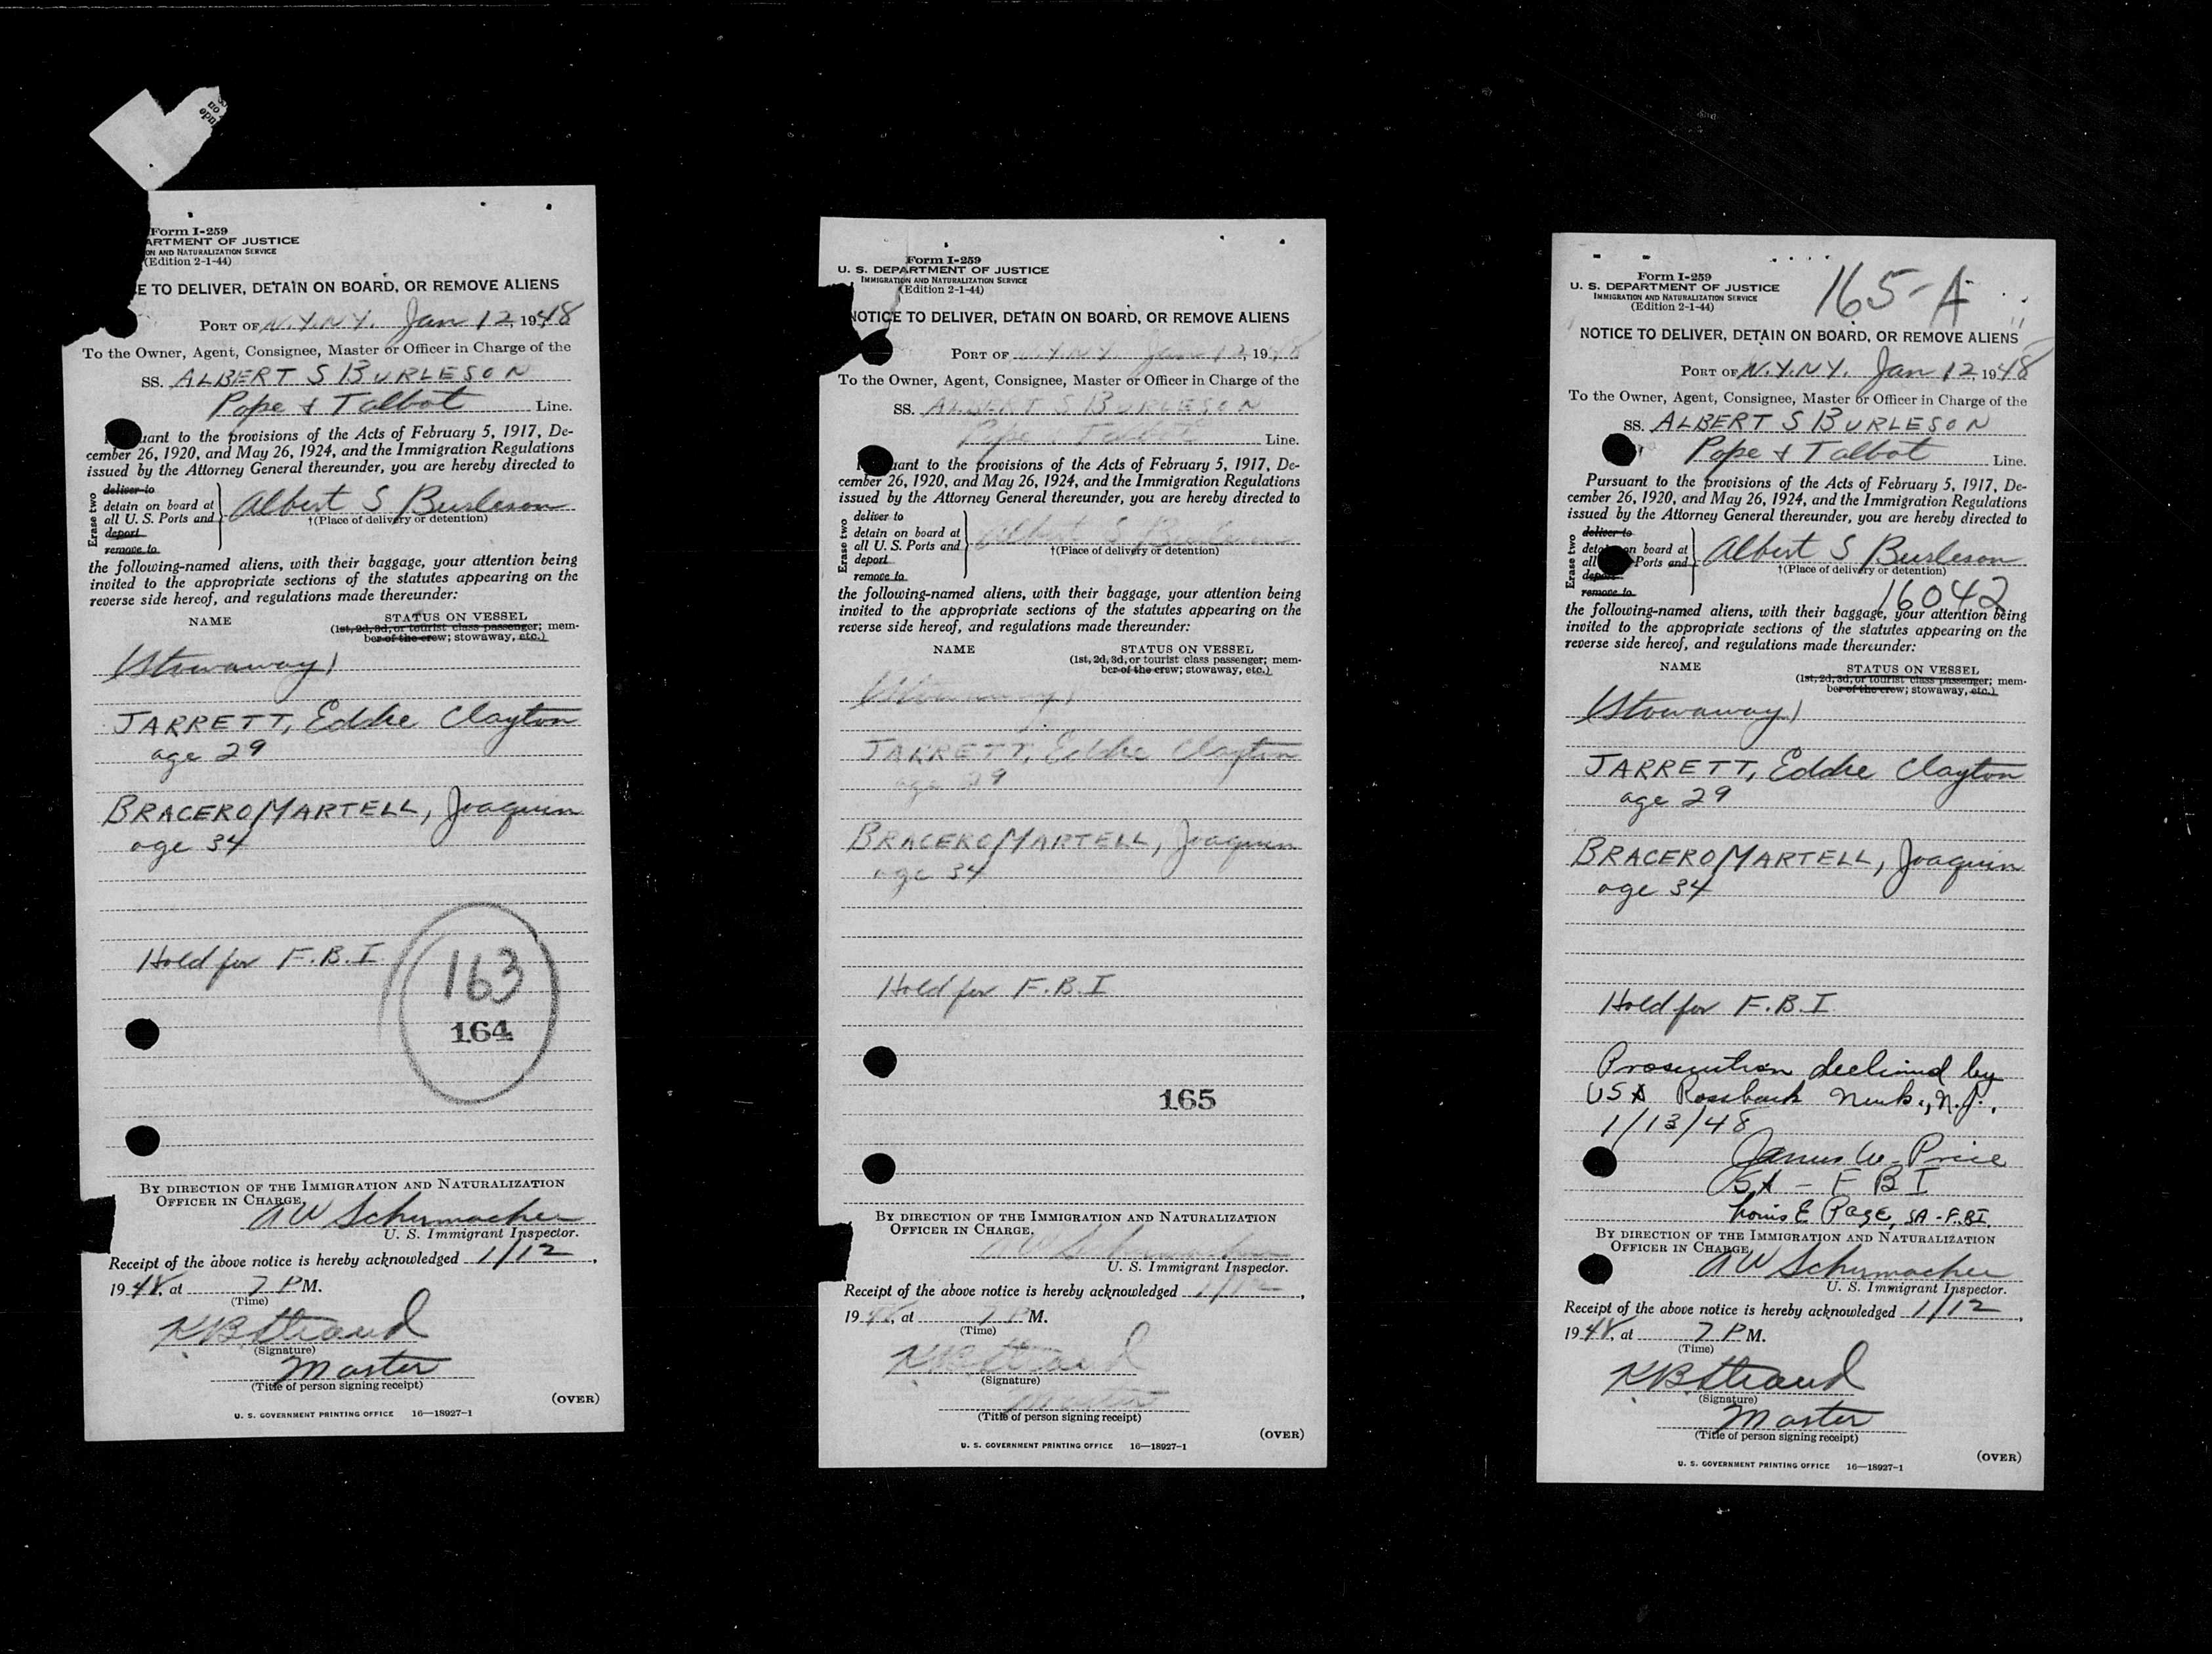 Form I-259
ARTMENT OF JUSTICE
ON AND NATURALIZATION SERVICE
(Edition 2-1-44)
E TO DELIVER, DETAIN ON BOARD, OR REMOVE ALIENS
PORT OF N.Y. N.Y. Jan 12, 1948
To the Owner, Agent, Consignee, Master or Officer in Charge of the
SS. ALBERT S BURLESON
Pope & Talbot Line.
uant to the provisions of the Acts of February 5, 1917, De-
cember 26, 1920, and May 26, 1924, and the Immigration Regulations
issued by the Attorney General thereunder, you are hereby directed to
Erase two
deliver to
detain on board at
all U. S. Ports and
deport
remove to
Albert S Burleson
†(Place of delivery or detention)
the following-named aliens, with their baggage, your attention being
invited to the appropriate sections of the statutes appearing on the
reverse side hereof, and regulations made thereunder:
NAME STATUS ON VESSEL
(1st, 2d, 3d, or tourist class passenger; mem-
ber of the crew; stowaway, etc.)
(Stowaway)
JARRETT, Eddie Clayton
age 29
BRACERO MARTELL, Joaquin
age 34
Hold for F.B.I
163
164
BY DIRECTION OF THE IMMIGRATION AND NATURALIZATION
OFFICER IN CHARGE,
AW Schumacher
U. S. Immigrant Inspector.
Receipt of the above notice is hereby acknowledged 1/12,
1948, at 7 P M.
(Time)
KB Strand
(Signature)
Master
(Title of person signing receipt)
(OVER)
U. S. GOVERNMENT PRINTING OFFICE 16—18927-1
Form I-259
U. S. DEPARTMENT OF JUSTICE
IMMIGRATION AND NATURALIZATION SERVICE
(Edition 2-1-44)
NOTICE TO DELIVER, DETAIN ON BOARD, OR REMOVE ALIENS
PORT OF N.Y. N.Y. Jan 12, 1948
To the Owner, Agent, Consignee, Master or Officer in Charge of the
SS. ALBERT S BURLESON
Pope & Talbot Line.
uant to the provisions of the Acts of February 5, 1917, De-
cember 26, 1920, and May 26, 1924, and the Immigration Regulations
issued by the Attorney General thereunder, you are hereby directed to
Erase two
deliver to
detain on board at
all U. S. Ports and
deport
remove to
Albert S Burleson
†(Place of delivery or detention)
the following-named aliens, with their baggage, your attention being
invited to the appropriate sections of the statutes appearing on the
reverse side hereof, and regulations made thereunder:
NAME STATUS ON VESSEL
(1st, 2d, 3d, or tourist class passenger; mem-
ber of the crew; stowaway, etc.)
(Stowaway)
JARRETT, Eddie Clayton
age 29
BRACERO MARTELL, Joaquin
age 34
Hold for F.B.I
165
BY DIRECTION OF THE IMMIGRATION AND NATURALIZATION
OFFICER IN CHARGE.
AW Schumacher
U. S. Immigrant Inspector.
Receipt of the above notice is hereby acknowledged 1/12,
1948, at 7 P M.
(Time)
KB Strand
(Signature)
Master
(Title of person signing receipt)
(OVER)
U. S. GOVERNMENT PRINTING OFFICE 16—18927-1
Form I-259
U. S. DEPARTMENT OF JUSTICE
IMMIGRATION AND NATURALIZATION SERVICE
(Edition 2-1-44)
165-A
NOTICE TO DELIVER, DETAIN ON BOARD, OR REMOVE ALIENS
PORT OF N.Y. N.Y. Jan 12, 1948
To the Owner, Agent, Consignee, Master or Officer in Charge of the
SS. ALBERT S BURLESON
Pope & Talbot Line.
Pursuant to the provisions of the Acts of February 5, 1917, De-
cember 26, 1920, and May 26, 1924, and the Immigration Regulations
issued by the Attorney General thereunder, you are hereby directed to
Erase two
deliver to
detain on board at
all Ports and
deport
remove to
Albert S Burleson
†(Place of delivery or detention)
16042
the following-named aliens, with their baggage, your attention being
invited to the appropriate sections of the statutes appearing on the
reverse side hereof, and regulations made thereunder:
NAME STATUS ON VESSEL
(1st, 2d, 3d, or tourist class passenger; mem-
ber of the crew; stowaway, etc.)
(Stowaway)
JARRETT, Eddie Clayton
age 29
BRACERO MARTELL, Joaquin
age 34
Hold for F.B.I
Prosecution declined by
USA Rossbach Newk., N.J.,
1/13/48
James W. Price
SA - F B I
Louis E Page, SA - F.B.I.
BY DIRECTION OF THE IMMIGRATION AND NATURALIZATION
OFFICER IN CHARGE,
AW Schumacher
U. S. Immigrant Inspector.
Receipt of the above notice is hereby acknowledged 1/12,
1948, at 7 P M.
(Time)
KB Strand
(Signature)
Master
(Title of person signing receipt)
(OVER)
U. S. GOVERNMENT PRINTING OFFICE 16—18927-1